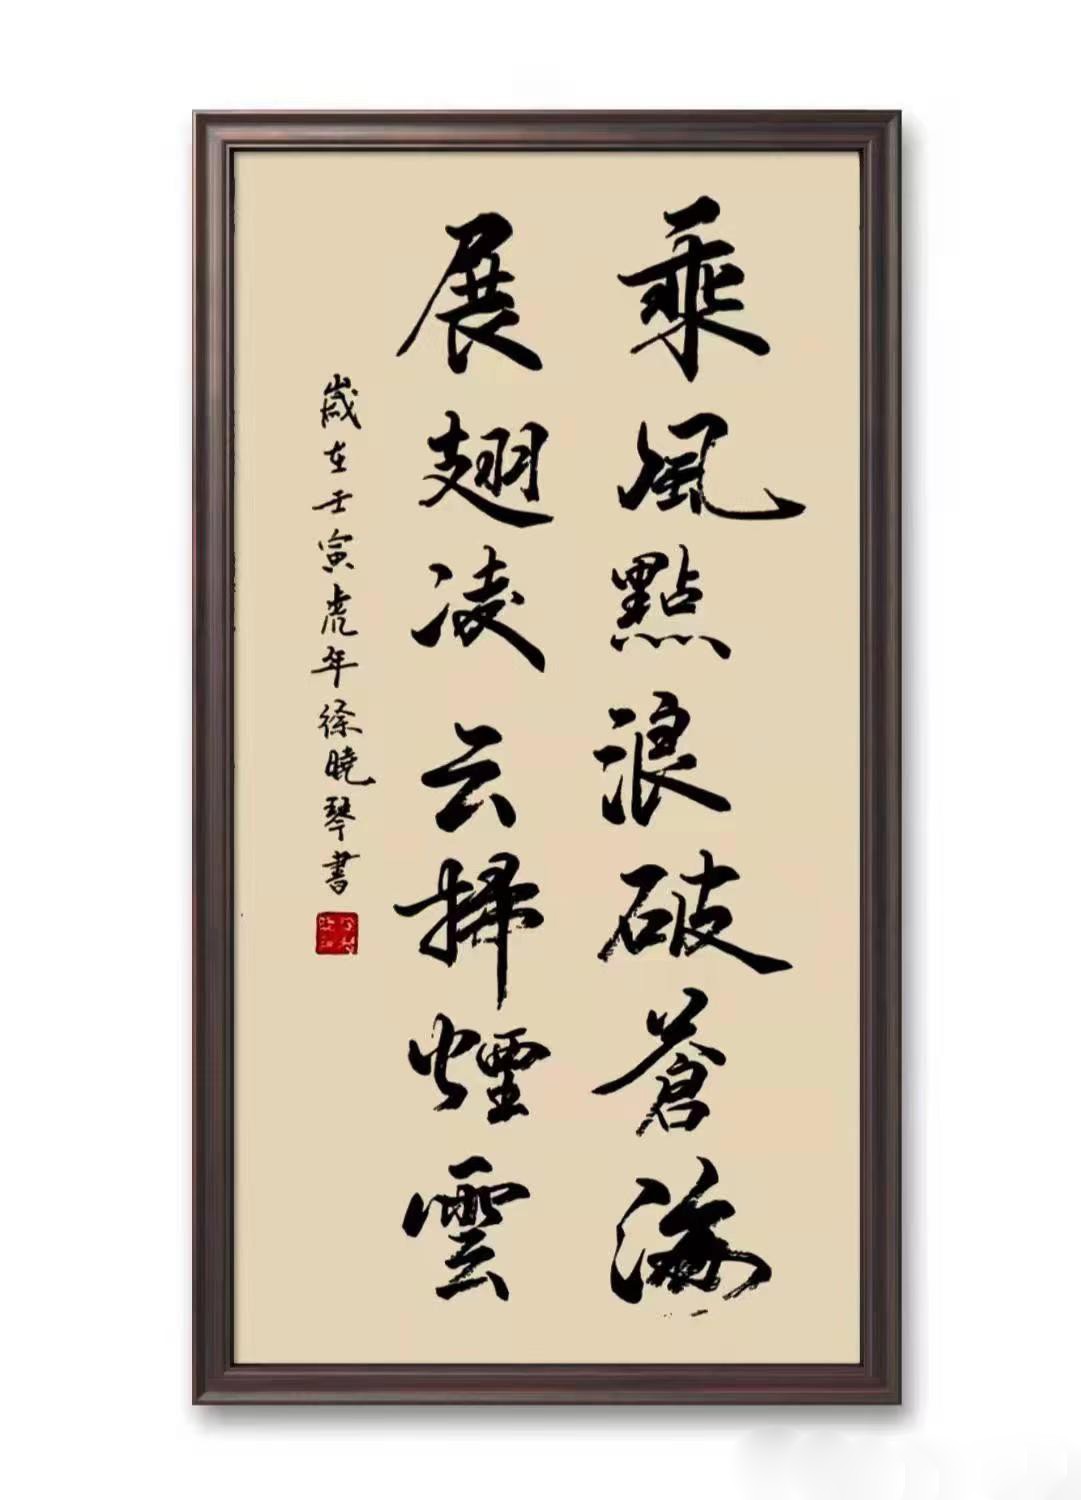 乘風點浪破蒼海
展翅凌云掃煙雲
歲在壬寅虎年徐曉琴書